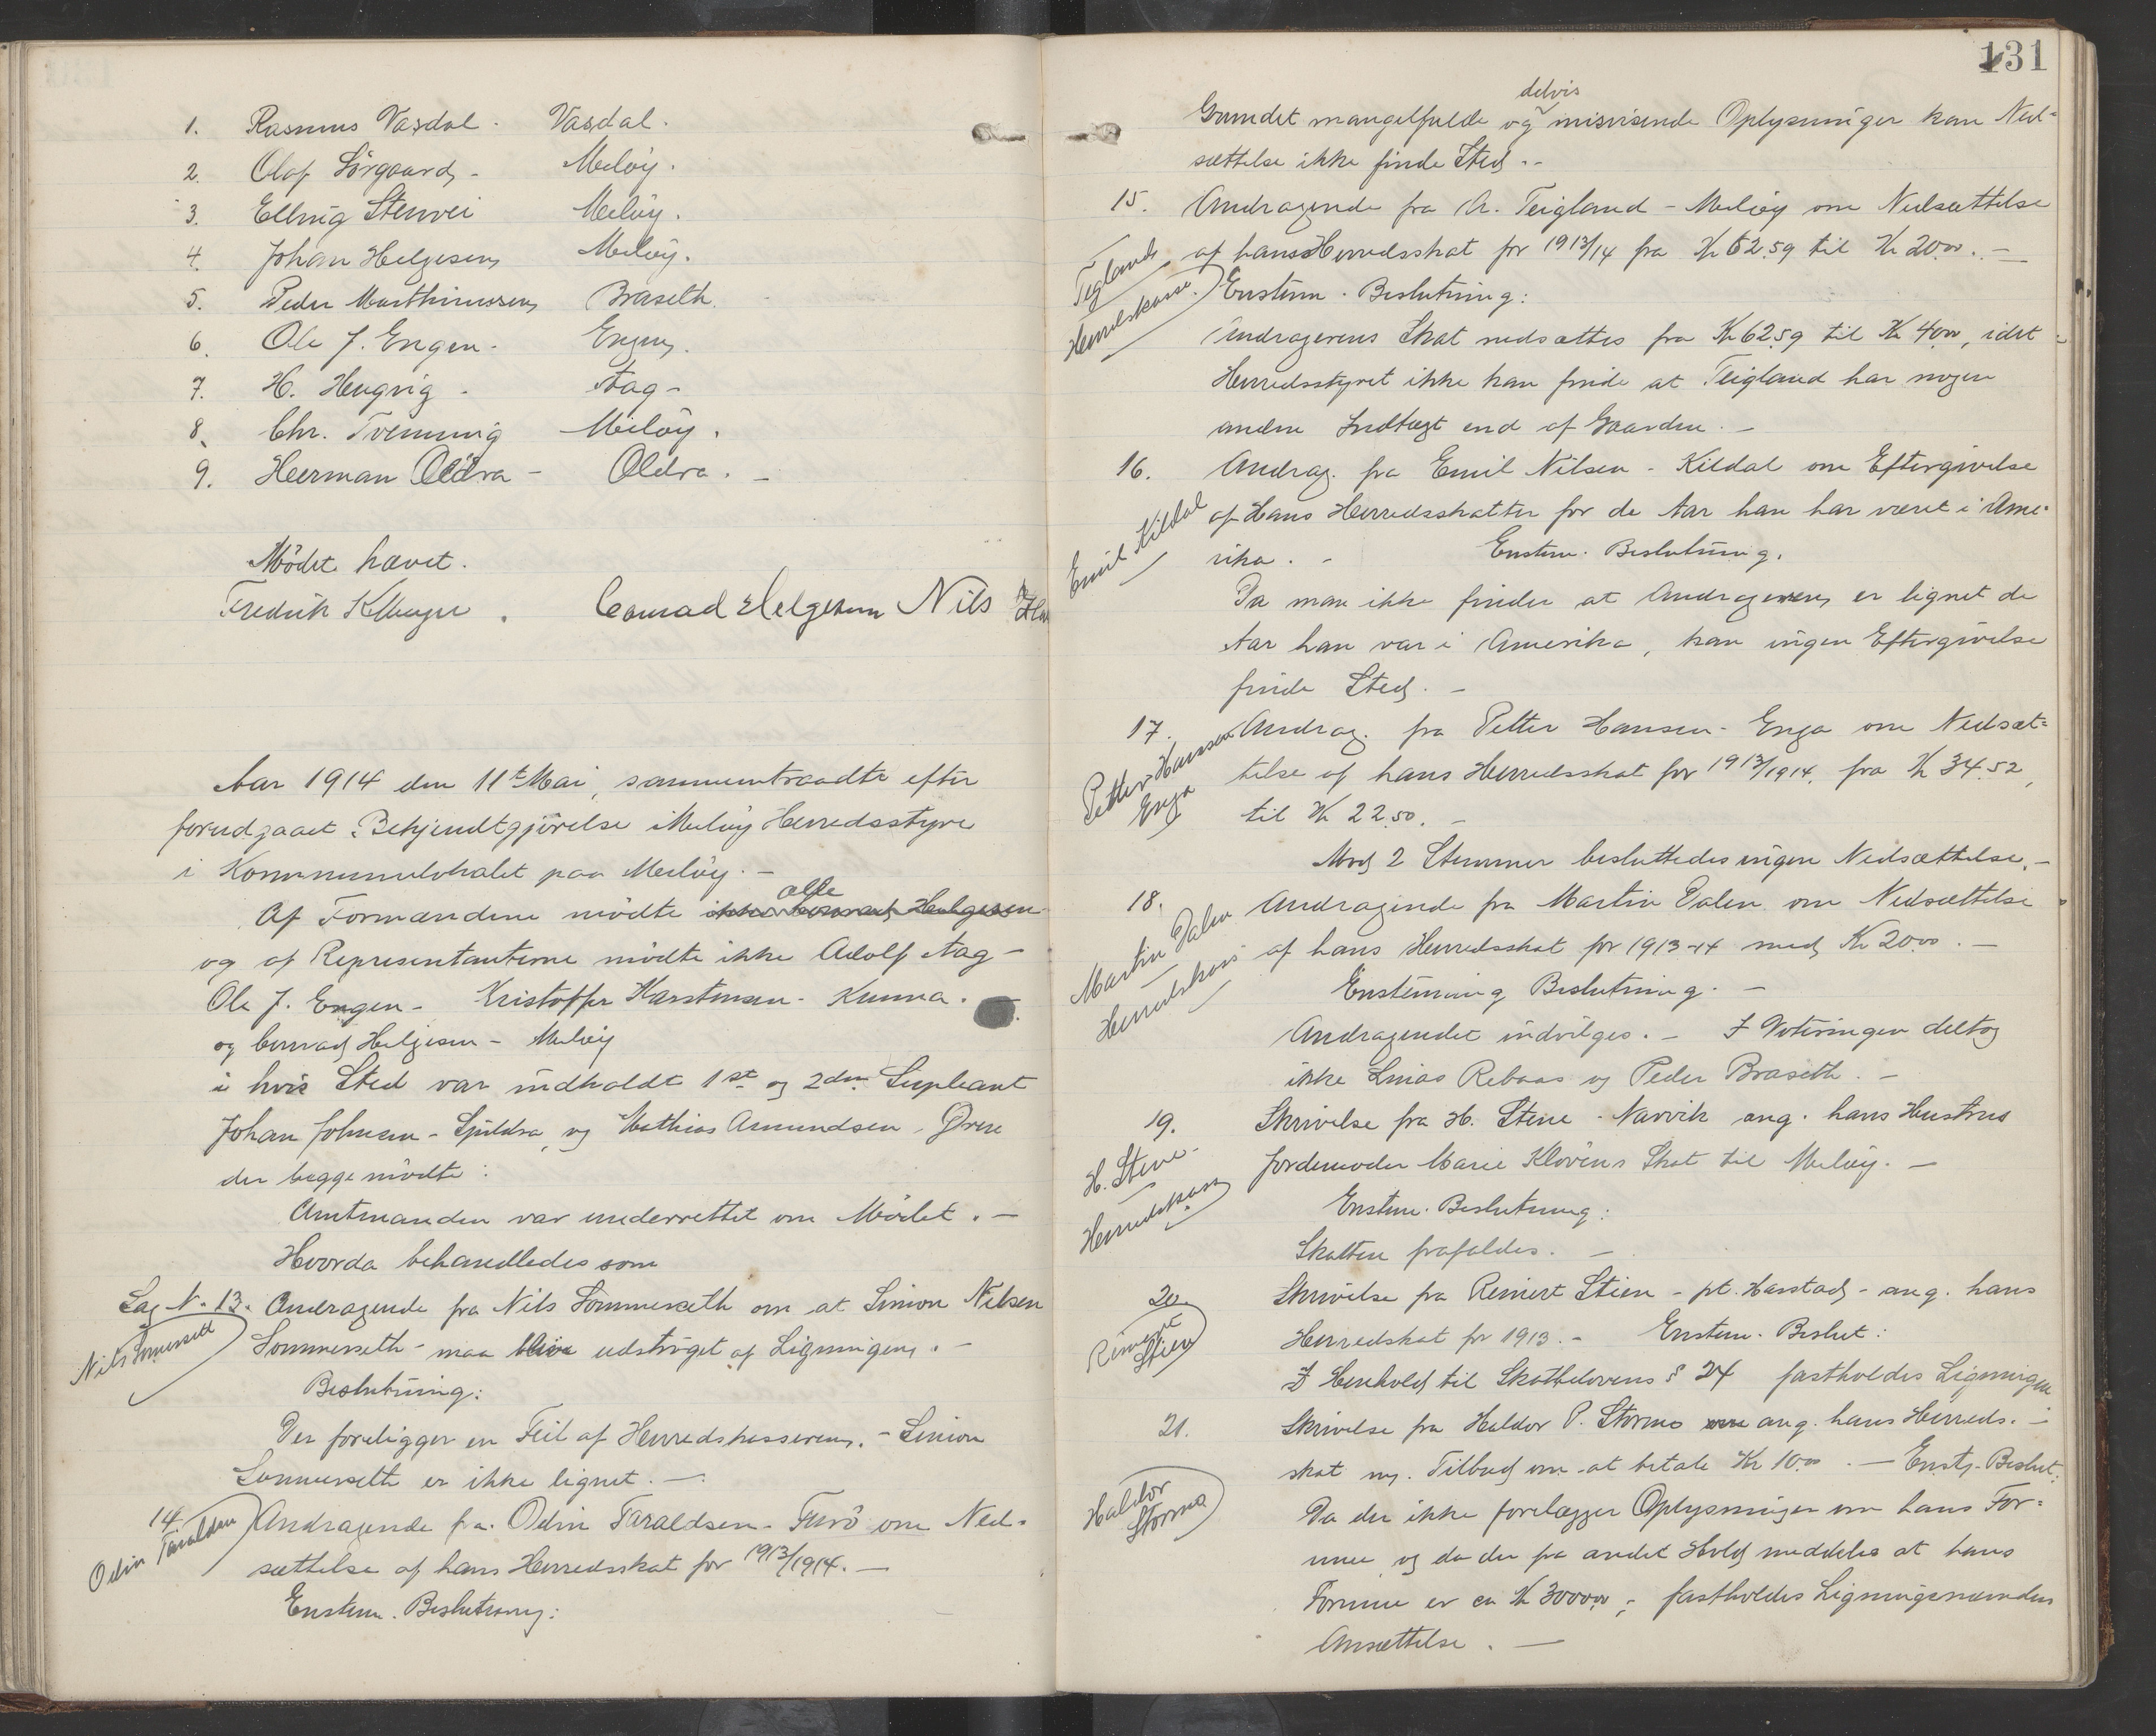 1. Rasmus Vasdal - Vasdal.
2. Olaf Sørgaard - Meløy.
3. Elling Stenvei Meløy.
4. Johan Helgesen Meløy.
5. Peder Marthinussen Braseth.
6. Ole J. Engen - Engen.
7. H. Hugvig - Aag -
8. Chr. Tvenning Meløy.
9. Herman Oldra - Oldra. -
Mödet hævet.
Fredrik Conrad Helgesen Nils
Aar 1914 den 11te Mai, sammentraadte efter
forudgaaet Bekjendtgjörelse i Melöy Herredsstyre
i Kommunelokalet paa Melöy. -
Af Formændene mödte ikke Conrad Helgesen alle
og af Representanterne mödte ikke Adolf Aag -
Ole J. Engen - Kristoffer Karstensen - Kunna.
og Conrad Helgesen - Melöy
i hvis Sted var indkaldt 1st og 2den Supleant
Johan Johnsen - Spildra, og Mathias Amundsen - Ørnes
der begge mödte:
Amtmanden var underrettet om Mödet. -
Hvorda behandledes som
Sag N. 13. Andragende fra Nils Sommerseth om at Simon Nilsen
Nils Sommerseth
Sommerseth - maa blive udströget af Ligningen. -
Beslutning:
Der foreligger en Feil af Herredskassereren. - Simon
Sommerseth er ikke lignet. -
14 Andragende fra Odin Taraldsen - Furö om Ned-
Odin Taraldsen
sættelse af hans Herredsskat for 1913/1914. -
Enstem. Beslutning:
131
delvis
Grundet mangelfulde og misvisende Oplysninger kan Ned=
sættelse ikke finde Sted. -
15. Andragende fra A. Teigland - Melöy om Nedsættelse
af hans Herredsskat for 1913/14 fra Kr 62.59 til Kr 20.00. -
Teigland Herredskasse.
Enstem. Beslutning:
Andragerens Skat nedsættes fra Kr 62.59 til Kr 40.00, idet
Herredsstyret ikke kan finde at Teigland har nogen
anden Indtægt end af Gaarden. -
16. Andrag. fra Emil Nilsen - Kildal om Eftergivelse
af Hans Herredsskatter for de Aar han har været i Ame-
Emil Kildal
rika. - Enstem. Beslutning.
Da man ikke finder at Andrageren er lignet de
Aar han var i Amerika, kan ingen Eftergivelse
finde Sted. -
17. Andrag. fra Petter Hansen - Enga om Nedsæt=
Petter Hansen Enga
telse af hans Herredsskat for 1913/1914. fra Kr 34.52,
til Kr 22.50. -
Mod 2 Stemmer besluttedes ingen Nedsættelse. -
18. Andragende fra Martin Dalen om Nedsættelse
Martin Dalen Herredskass
af hans Herredsskat for 1913-14 med Kr 20.00. -
Enstemmig Beslutning. -
Andragendet indvilges. - I Voteringen deltog
ikke Linias Rebaas og Peder Braseth. -
19. Skrivelse fra H. Stene - Narvik ang. hans Hustrus
H. Stene - Herredskassen
fordemoder Marie Klövens Skat til Melöy. -
Enstem. Beslutning:
Skatten frafaldes. -
20. Skrivelse fra Reinert Stien - pt. Harstad - ang. hans
Reinert Stien
Herredskat for 1913. - Enstem. Beslut:
I Henhold til Skattelovens § 24 fastholdes Ligningen
21. Skrivelse fra Haldor P. Stormo ang. hans Herreds. -
skat og. Tilbud om at betale Kr 10.00. - Enst. Beslut.
Haldor Stormo
Da der ikke forelægger Oplysninger om hans For=
mue og da der fra andet Hold meddeles at hans
Formue er ca Kr 3000.00, fastholdes Ligningsnemndens
Ansættelse. -